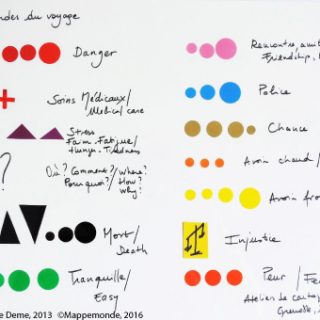 ndes du voyage
Danger
Soins Médicaux/
Medical care
Stress
Faim. Fatigue/
Hunger. Tiredness
?
Où? Comment?/Where?
Pourquoi?/How?
Why?
Mort/
Death
Tranquille/
Easy
Rencontre, amit
Friendship,
Police
Chance
Avoir chaud/
Avoir froi
Injustie
Peur/Fea
Atelier de cartog
Grenoble,
e Deme, 2013 ©Mappemonde, 2016